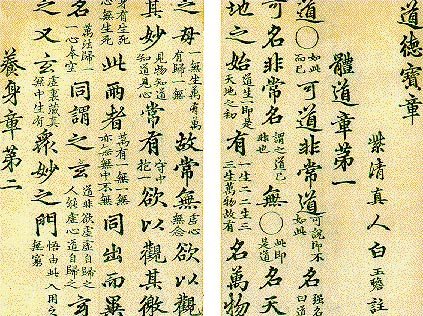 道德寶章
紫清真人白玉蟾註
體道章第一
道○如此而已可道非常道可說即不如此名強名曰道
可名非常名謂之道已非也無○此即是道名天
地之始道生一即是天地之初有一生二二生三三生萬物故有名萬物
之母一無生萬有萬有歸一無故常無虛心無念欲以觀
其妙見物知道知道見心常有守中抱一欲以觀其徼
身有生死心無生死此兩者萬有一無一無亦無無中不無同出而異
名萬法歸一一心本空同謂之玄道非欲虛虛自歸之人能虛心道自歸之玄
之又玄虛裏藏真無中生有眾妙之門悟由此入用之無窮
養身章第二